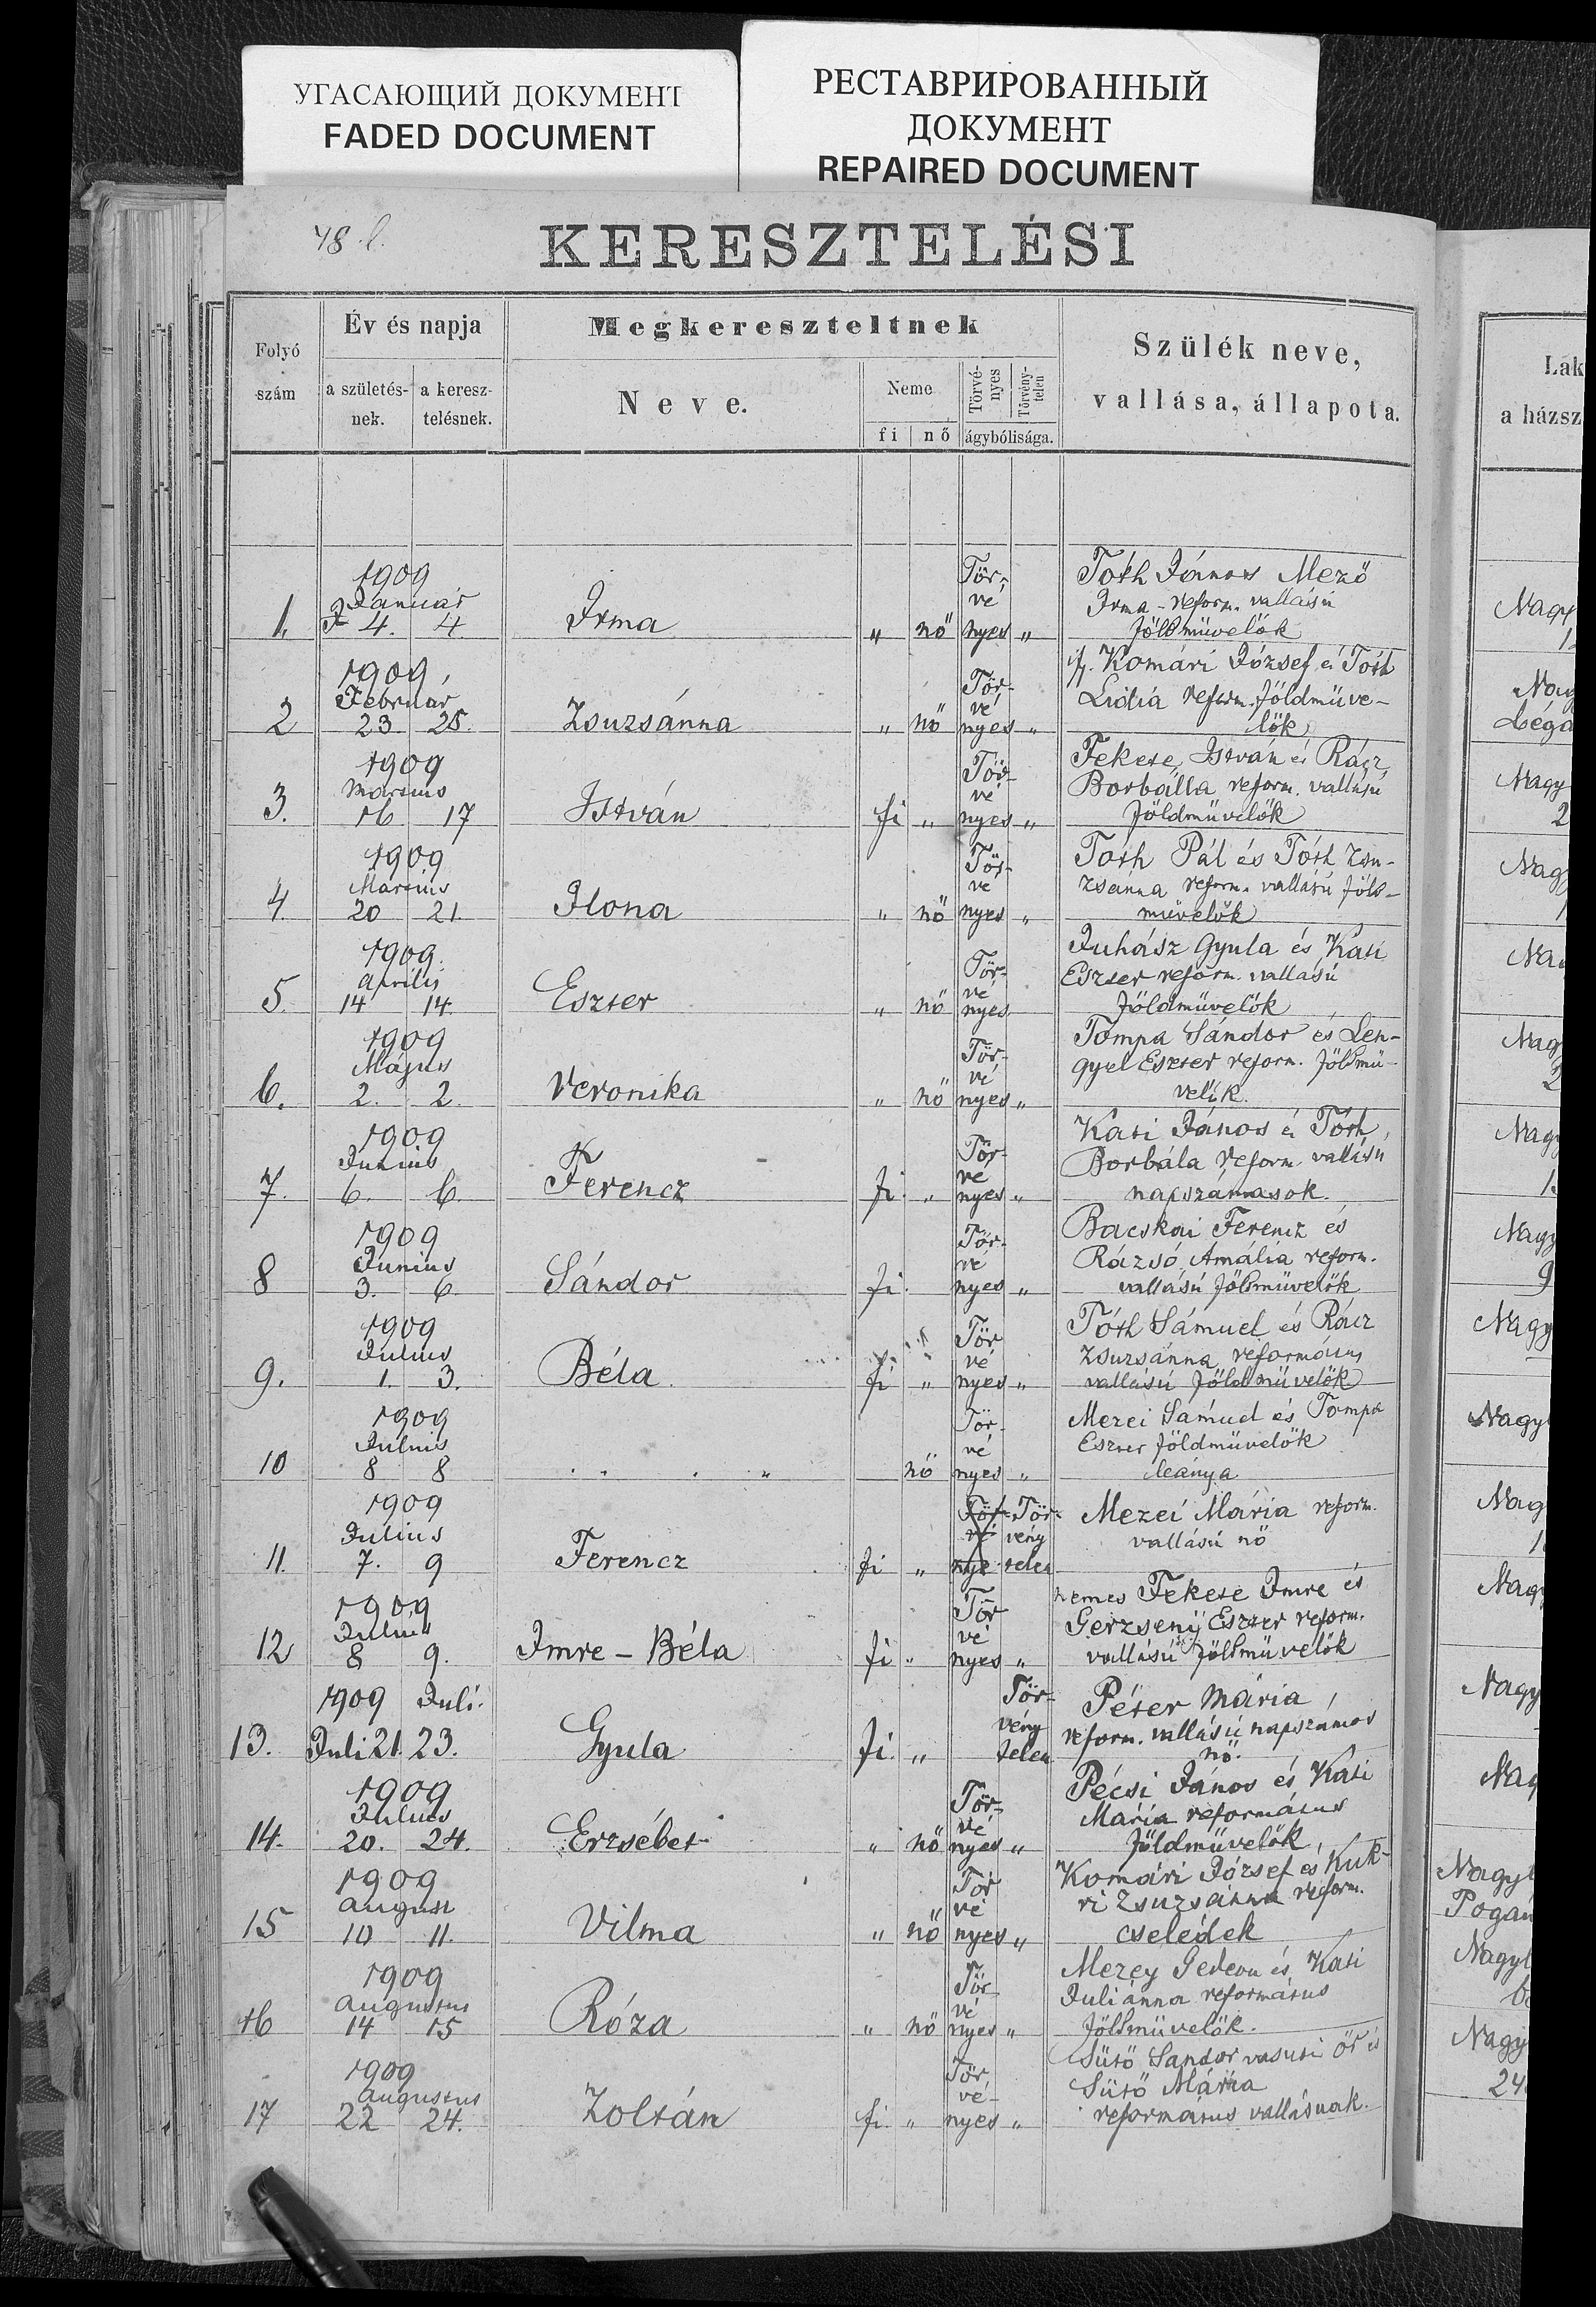 УГАСАЮЩИЙ ДОКУМЕНТ
FADED DOCUMENT
РЕСТАВРИРОВАННЫЙ
ДОКУМЕНТ
REPAIRED DOCUMENT
48.l.
KERESZTELÉSI
Folyó szám
Év és napja
a születés-nek.
a keresz-telésnek.
Megkereszteltnek
Neve.
Neme
fi nő
Törvé-nyes
Törvény-telen
ágybólisága.
Szülék neve,
vallása, állapota.
Lak
a házsz
1909
Január
1. 4. 4 Irma „ nő Tör-vé nyes „
Tóth János Mező
Irma - reform. vallású
földmüvelők
Nagy
1909
Február
2 23. 25. Zsuzsánna „ nő Tör-vé nyes „
ifj. Komári József és Tóth
Lidia reform. földmüve-
lők
Nag
Léga
1909
Martius
3. 16 17 István fi „ Tör-vé nyes „
Fekete István és Rácz
Borbálla reform. vallású
földmüvelők
Nagy
2
1909
Martius
4. 20 21. Ilona „ nő Tör-vé nyes „
Toth Pál és Tóth Zsu-
zsánna reform. vallású föld-
müvelők
Nagy
1909.
április
5. 14 14. Eszter „ nő Tör-vé nyes
Juhász Gyula és Kati
Eszter reform. vallású
földmüvelők
Na
1909
Május
6. 2. 2. Veronika „ nő Tör-vé nyes „
Tompa Sándor és Len-
gyel Eszter reform. földmü-
velők.
Nagy
2
1909
Junius
7. 6. 6. Ferencz fi. „ Tör-vé nyes „
Kati János és Tóth
Borbála reform. vallású
napszámosok.
Nagy
1.
1909
Junius
8 3. 6 Sándor fi. Tör-vé nyes „
Bacskai Ferencz és
Rázsó Amália reform.
vallású földmüvelők
Nagy
9
1909
Julius
9. 1. 3. Béla fi „ Tör vé nyes „
Tóth Sámuel és Rácz
Zsuzsánna református
vallású földmüvelők
Nagy
1909
Julius
10 8 8 „ nő Tör-vé nyes „
Mezei Sámuel és Tompa
Eszter földmüvelők
leánya
Nagy
1909
Julius
11. 7. 9 Ferencz fi „ Tör-vé nye Tör-vény telen
Mezei Mária reform.
vallású nő
Nag
1
1909
Julius
12 8 9. Imre - Béla fi „ Tör vé nyes „
nemes Fekete Imre és
Gerzsenÿ Eszter reform.
vallású földmüvelők
Nag
1909 Juli.
13. Juli 21. 23. Gyula fi. „ Tör-vény telen
Péter Mária,
reform. vallású napszámos
nő.
Nagy
1909
Julius
14. 20. 24. Erzsébet „ nő Tör-vé nyes „
Pécsi János és Kati
Mária református
földmüvelők
Nag
1909
August
15 10 11. Vilma „ nő Tör vé nyes „
Komári József és Kuk-
ri Zsuzsánna reform.
cselédek
Nagyl
Pogán
1909
Augustus
16 14 15 Róza „ nő Tör-vé nyes „
Mezey Gedeon és Kati
Juliánna református
földmüvelők.
Nagyl
1909
Augustus
17 22 24. Zoltán fi. „ Tör vé- nyes „
Sütő Sandor vasuti őr és
Sütő Mária
református vallásuak.
Nagy
24